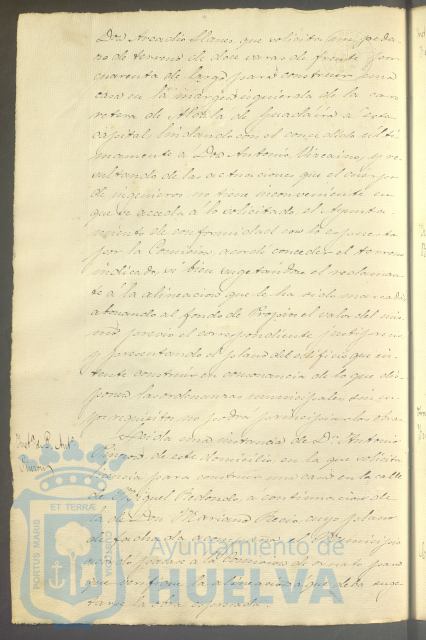 Don Arcadio Llanes, que solicita un peda-
zo de terreno de doce varas de frente por
cuarenta de largo para construir una
casa en la margen izquierda de la carre-
tera de Alcalá de Guadaira a esta
capital, lindando con el concedido ulti-
mamente a Don Antonio Vizcaino, y re-
sultando de las actuaciones que el cuerpo
de ingenieros no tiene inconveniente en
que se acceda á lo solicitado, el Ayunta-
miento de conformidad con lo espuesto
por la Comision acordó conceder el terreno
indicado, si bien sugetandose el reclaman-
te á la alineacion que le ha sido marcada,
abonando al fondo de Propios el valor del mis-
mo previo el correspondiente justiprecio
y presentando el plano del edificio que in-
tente construir en consonancia de lo que dis-
ponen las ordenanzas municipales sin cu-
yo requisito no podrá principiar las obras.
Leida una instancia de Dn. Antonio
de este domicilio, en la que solicita
licencia para construir una casa en la calle
de Miguel Redondo, a continuacion de
la de Don Mariano cuyo plano
de fachada acompaña, el Municipio
acordó pasase a la comision de ornato para
que verifique la alineacion a que deba suge-
tarse la obra espresada.
PORTUS MARIS ET TERRÆ CUSTODIA
Ayuntamiento de
HUELVA